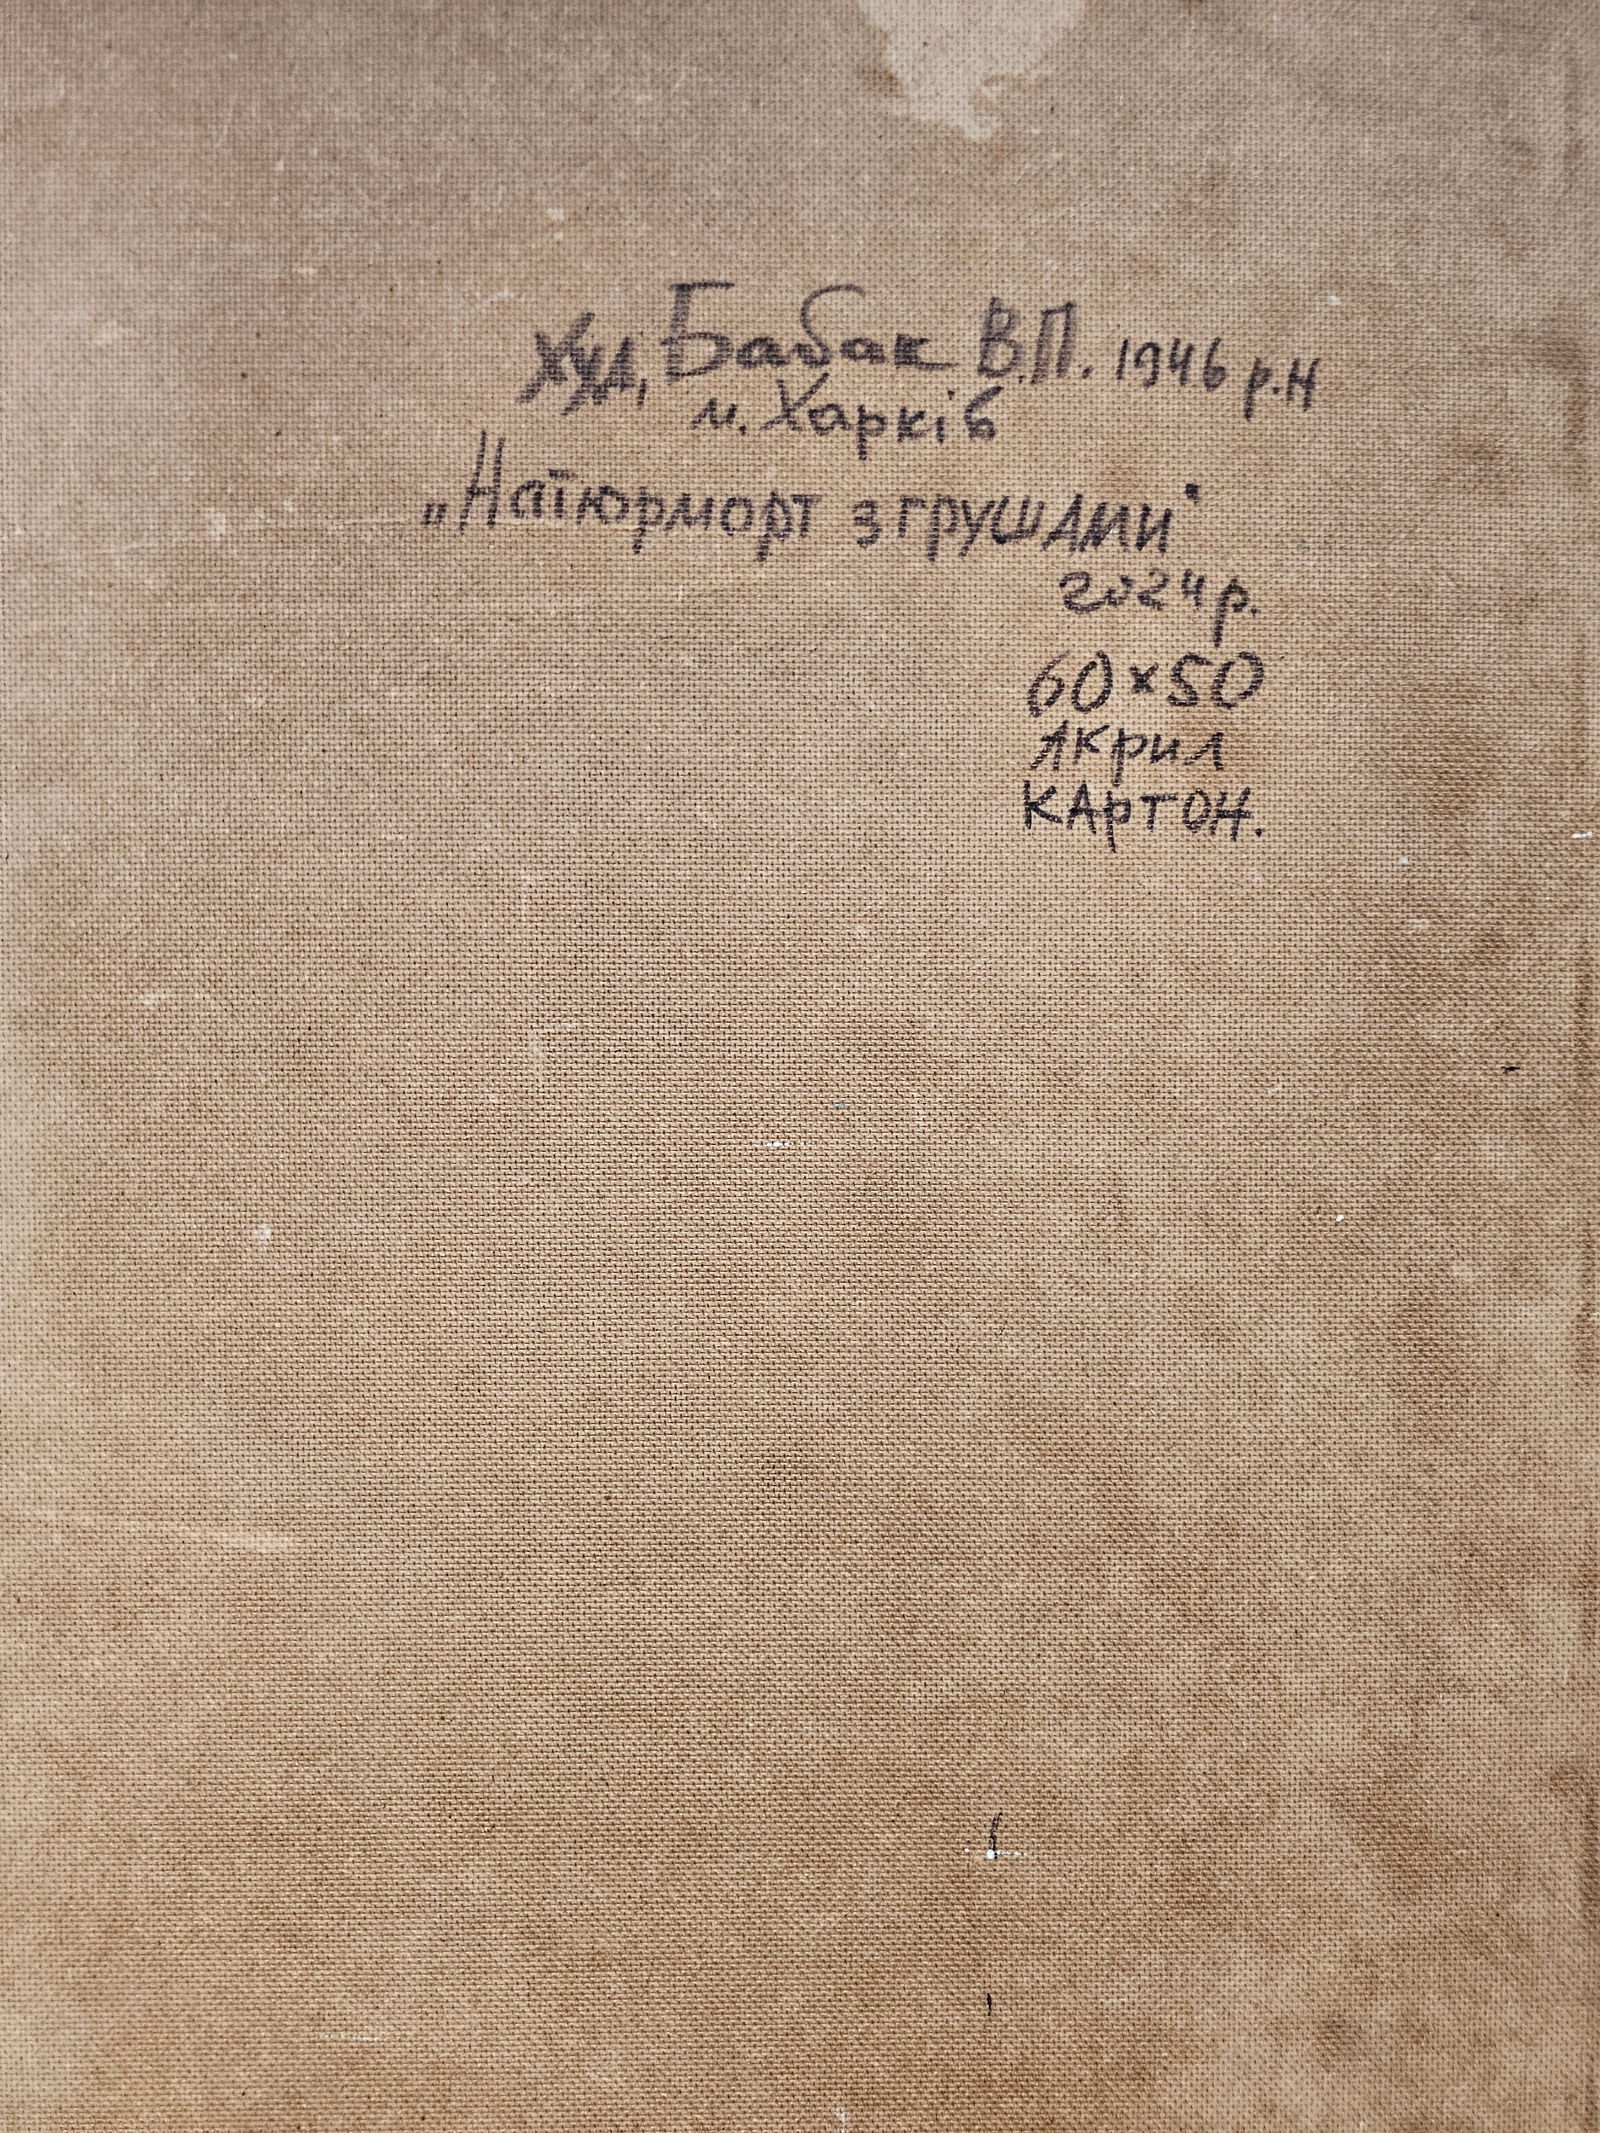 Худ. Бабак В.П. 1946 р.н
м. Харків
„Натюрморт з грушами"
2024 р.
60×50
Акрил
КАртОН.